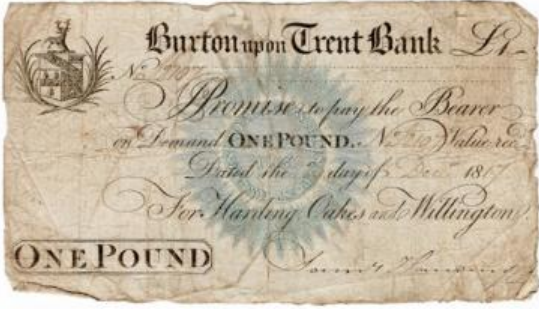 Burton upon Trent Bank £1
No
I Promise to pay the Bearer
on Demand ONE POUND. No Value recd
Dated the day of Decr 1817
For Harding Oakes and Willington
ONE POUND